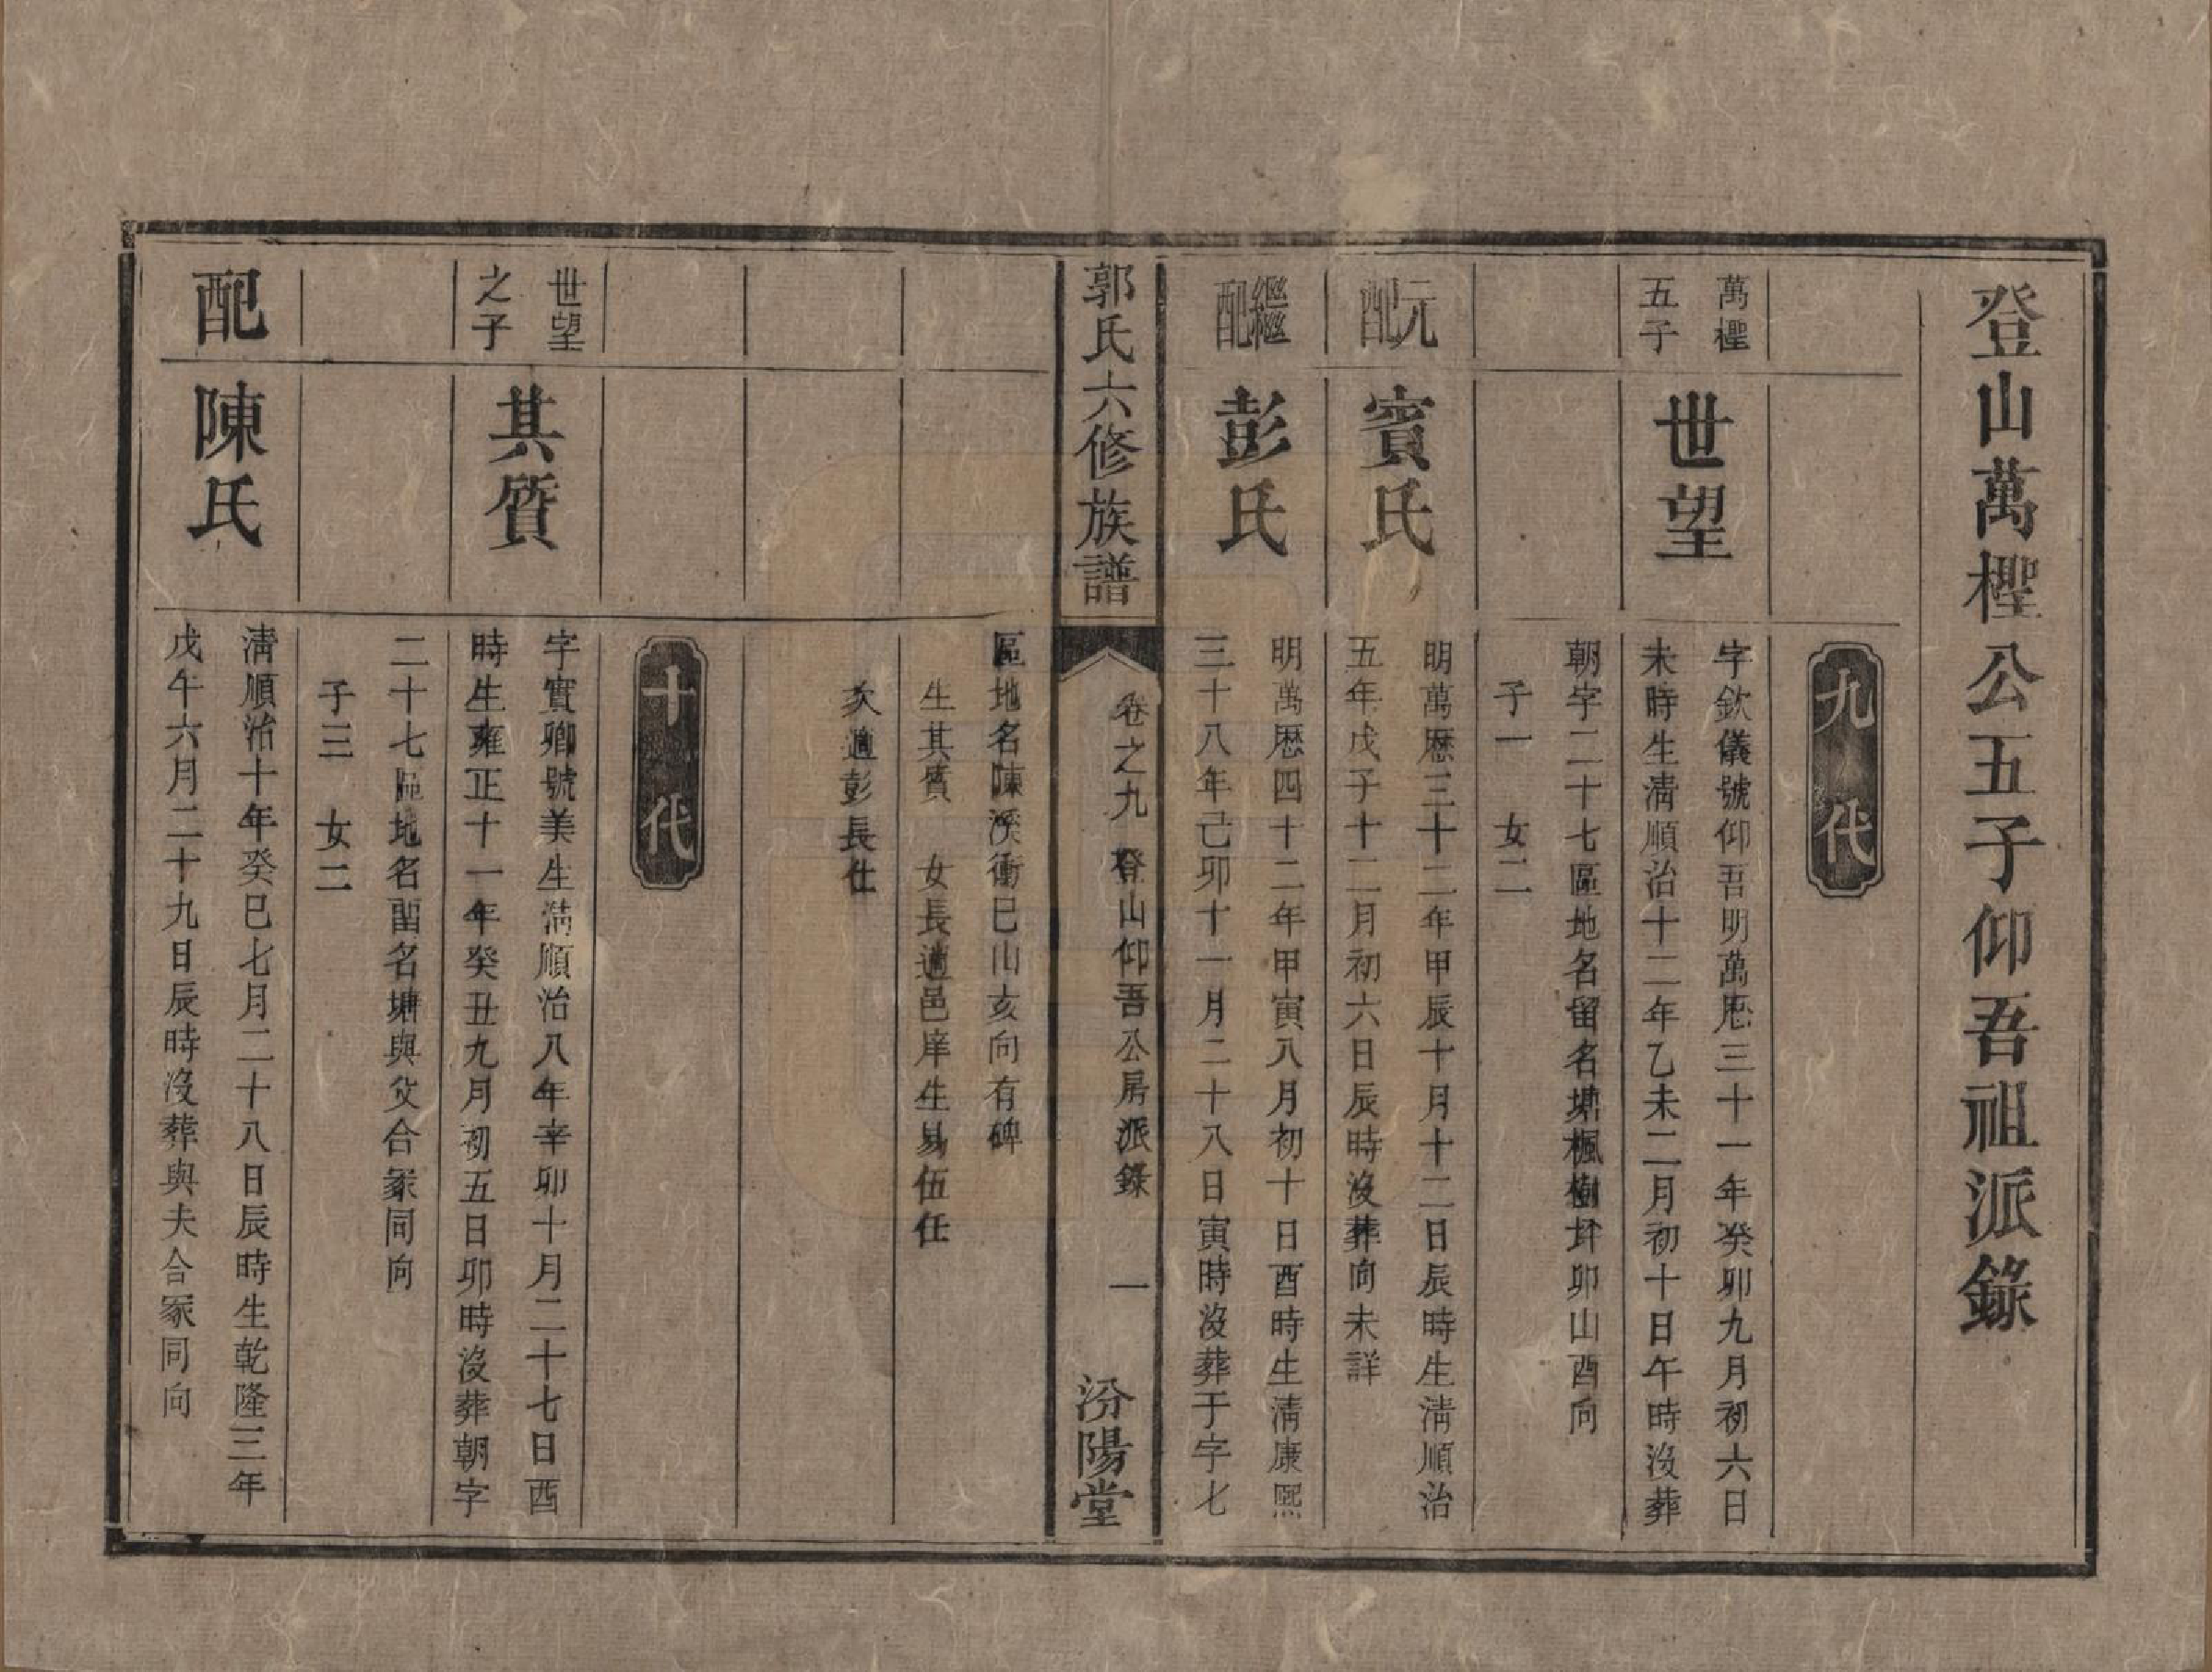 登山萬檉公五子仰吾祖派錄
九代
萬檉
五子
世望
字欽儀號仰吾明萬厯三十一年癸卯九月初六日
未時生淸順治十二年乙未二月初十日午時沒葬
朝字二十七區地名留名塘楓樹坪卯山酉向
子一 女二
元配
賓氏
明萬厯三十二年甲辰十月十二日辰時生淸順治
五年戊子十二月初六日辰時沒葬向未詳
繼配
彭氏
明萬厯四十二年甲寅八月初十日酉時生淸康熙
三十八年己卯十一月二十八日寅時沒葬于字七
郭氏六修族譜
卷之九 登山仰吾公房派錄 一
汾陽堂
區地名陳溪衝巳山亥向有碑
生其質 女長適邑庠生易伍任
次適彭長仕
十代
世望
之子
其質
字實卿號美生淸順治八年辛卯十月二十七日酉
時生雍正十一年癸丑九月初五日卯時沒葬朝字
二十七區地名留名塘與父合冢同向
子三 女二
配
陳氏
淸順治十年癸巳七月二十八日辰時生乾隆三年
戊午六月二十九日辰時沒葬與夫合冢同向